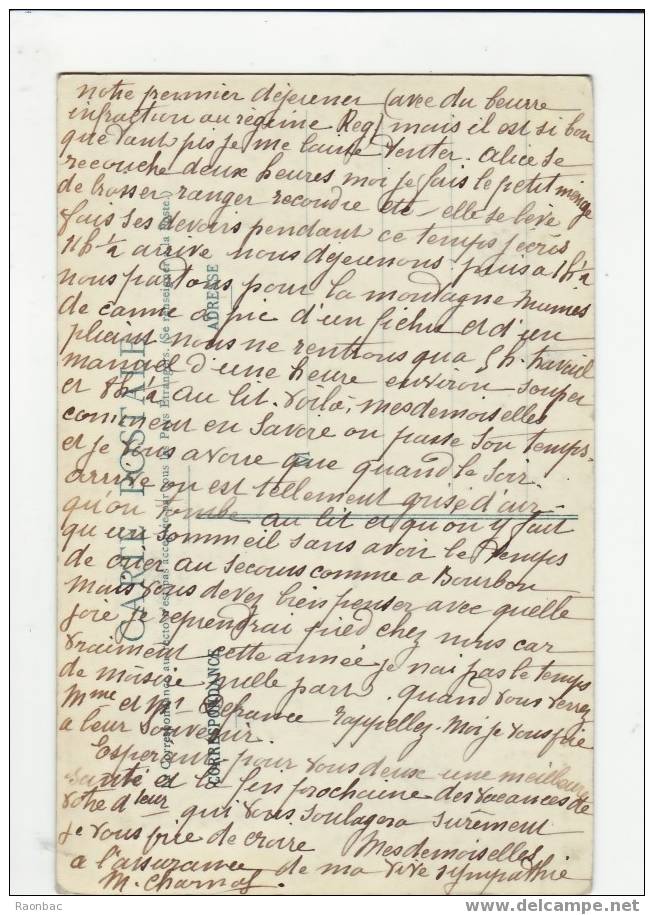 notre premier déjeuner (avec du beurre
infraction au régime Reg) mais il est si bon
que tant pis je me laisse tenter. Alice se
recouche deux heures moi je fais le petit ménage
de brosser ranger recoudre etc - elle se lève
fais ses devoirs pendant ce temps j'écris
11h ½ arrive nous déjeunons puis a 1h ½
nous partons pour la montagne munies
de canne a pic d'un fichu et d'un
pliant nous ne rentrons qu'a 5h. travail
manuel d'une heure environ souper
et 8h ½ au lit. Voilà, mesdemoiselles
comment en Savoie on passe son temps.
et je vous avoue que quand le soir
arrive on est tellement grisé d'air
qu'on tombe au lit et qu'on y fait
qu'un sommeil sans avoir le temps
de crier au secours comme a Bourbon
Mais vous devez bien penser avec quelle
joie je reprendrai pied chez nous car
vraiment cette année je n'ai pas le temps
de moisir nulle part. quand vous verrez
Mme et Mr rappellez-moi je vous prie
a leur souvenir.
Espérant pour vous deux une meilleure
santé et la fin prochaine des vacances de
votre d'leur qui vous soulagera surement
je vous prie de croire Mesdemoiselles
a l'assurance de ma vive sympathie
M.
CARTE POSTALE
Correspondance au recto n'est pas acceptée par tous les Pays Etrangers. (Se renseigner à la Poste.)
CORRESPONDANCE
ADRESSE
M
Raonbac
www.delcampe.net